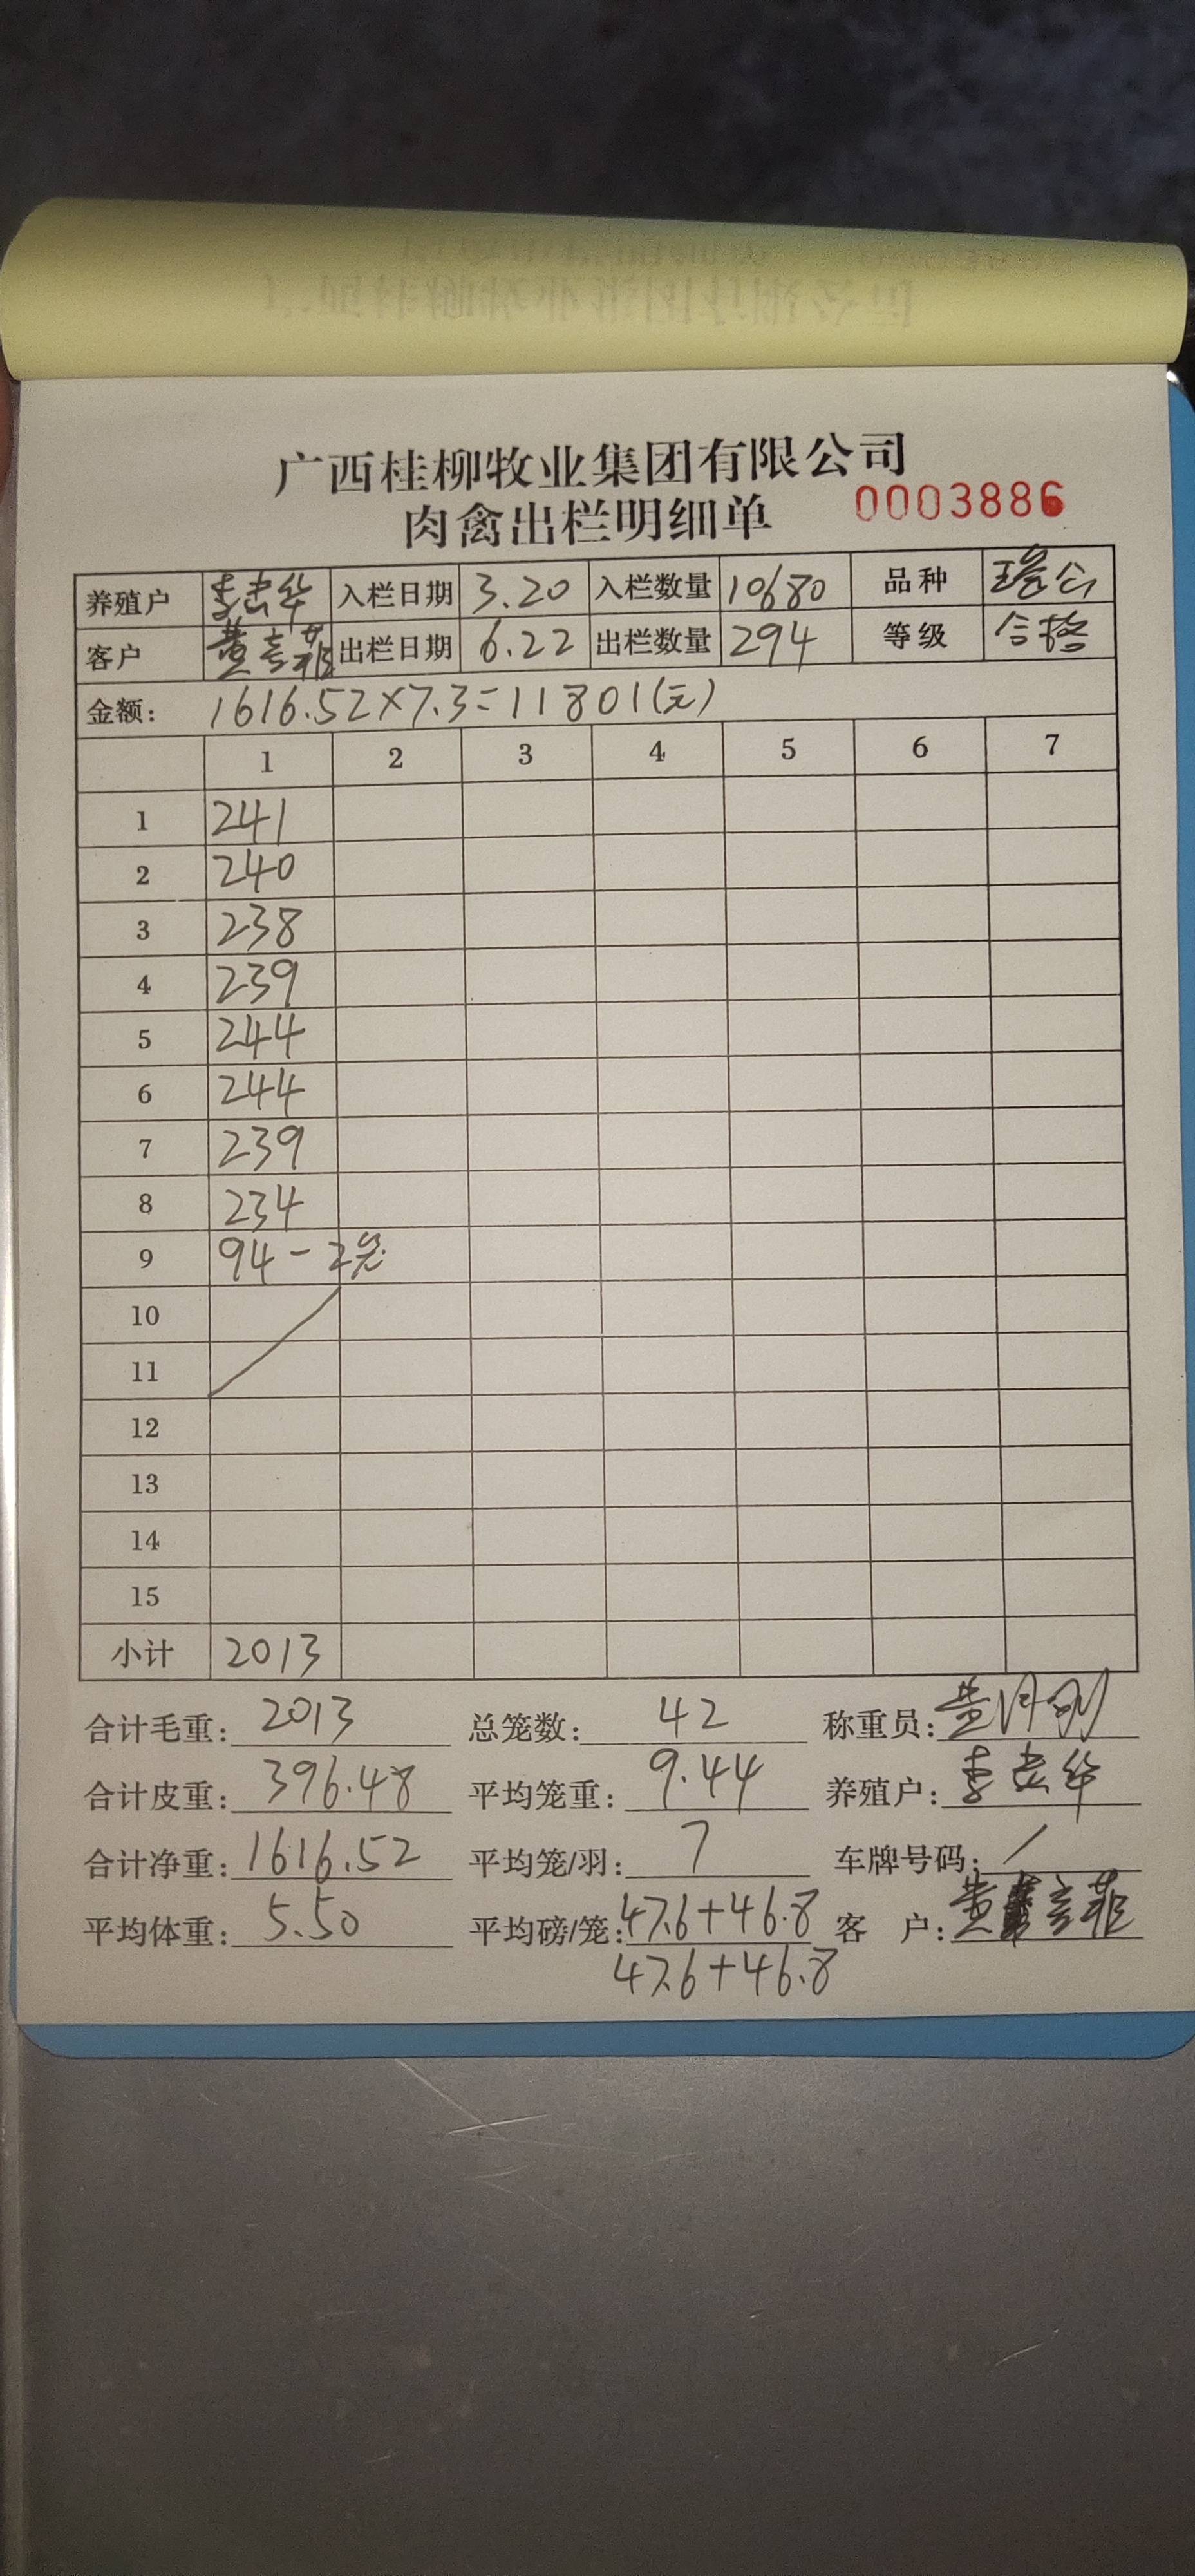 广西桂柳牧业集团有限公司
肉禽出栏明细单 0003886
养殖户 李宏华 入栏日期 3.20 入栏数量 10680 品种 瑶公
客户 黄 菲 出栏日期 6.22 出栏数量 294 等级 合格
金额: 1616.52×7.3=11801(元)
1 2 3 4 5 6 7
1 241
2 240
3 238
4 239
5 244
6 244
7 239
8 234
9 94-2笼
10
11
12
13
14
15
小计 2013
合计毛重: 2013 总笼数: 42 称重员: 黄月刚
合计皮重: 396.48 平均笼重: 9.44 养殖户: 李宏华
合计净重: 1616.52 平均笼/羽: 7 车牌号码: /
平均体重: 5.50 平均磅/笼: 47.6+46.8 客 户: 黄 菲
47.6+46.8